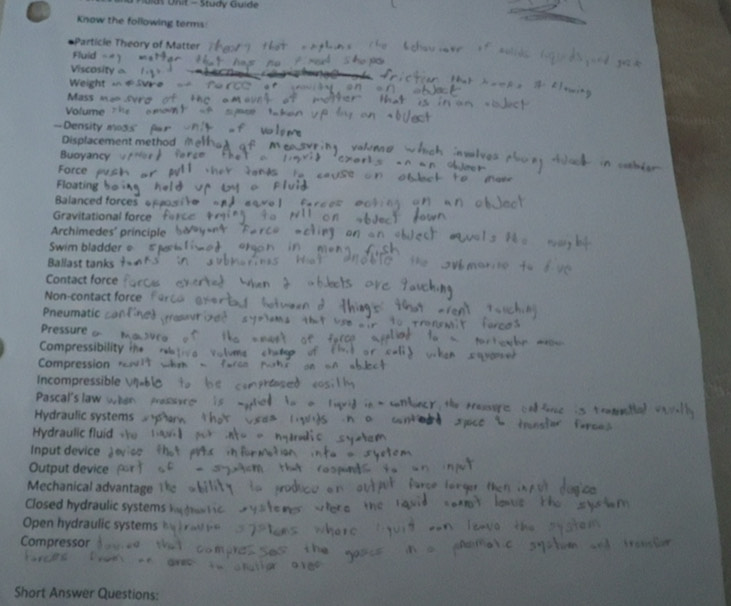 Fluids Unit – Study Guide
Know the following terms:
Particle Theory of Matter theory that explains the behaviour of solids liquids, and gases
Fluid any matter that has no fixed shape
Viscosity a friction that keeps it flowing
Weight measure of force of gravity on an object
Mass measure of the amount of matter that is in an object
Volume the amount of space taken up by an object
Density mass per unit of volume
Displacement method method of measuring volume which involves object in
Buoyancy upward force that a liquid exerts on an object
Force push or pull that tends to cause an object to move
Floating being held up by a fluid
Balanced forces opposite and equal forces acting on an object
Gravitational force force trying to pull on object down
Archimedes' principle buoyant force acting on an object equals the weight
Swim bladder a specialized organ in many fish
Ballast tanks tanks in submarines that enable the submarine to dive
Contact force forces exerted when 2 objects are touching
Non-contact force force exerted between 2 things that aren't touching
Pneumatic confined, pressurized systems that use air to transmit forces
Pressure a measure of the amount of force applied to a particular area
Compressibility the volume change of fluid or solid when squeezed
Compression result when a force on an object
Incompressible unable to be compressed easily
Pascal's law when pressure is applied to a liquid in a container, the pressure is transmitted equally
Hydraulic systems system that uses liquids in a space to transfer forces
Hydraulic fluid the liquid put into a hydrolic system
Input device device that puts information into a system
Output device part of a system that responds to an input
Mechanical advantage the ability to produce an output force larger then input
Closed hydraulic systems hydraulic systems where the liquid cannot leave the system
Open hydraulic systems hydraulic systems where liquid can leave the system
Compressor device that compresses the gases in a system and transfer
forces from an area to smaller area
Short Answer Questions: